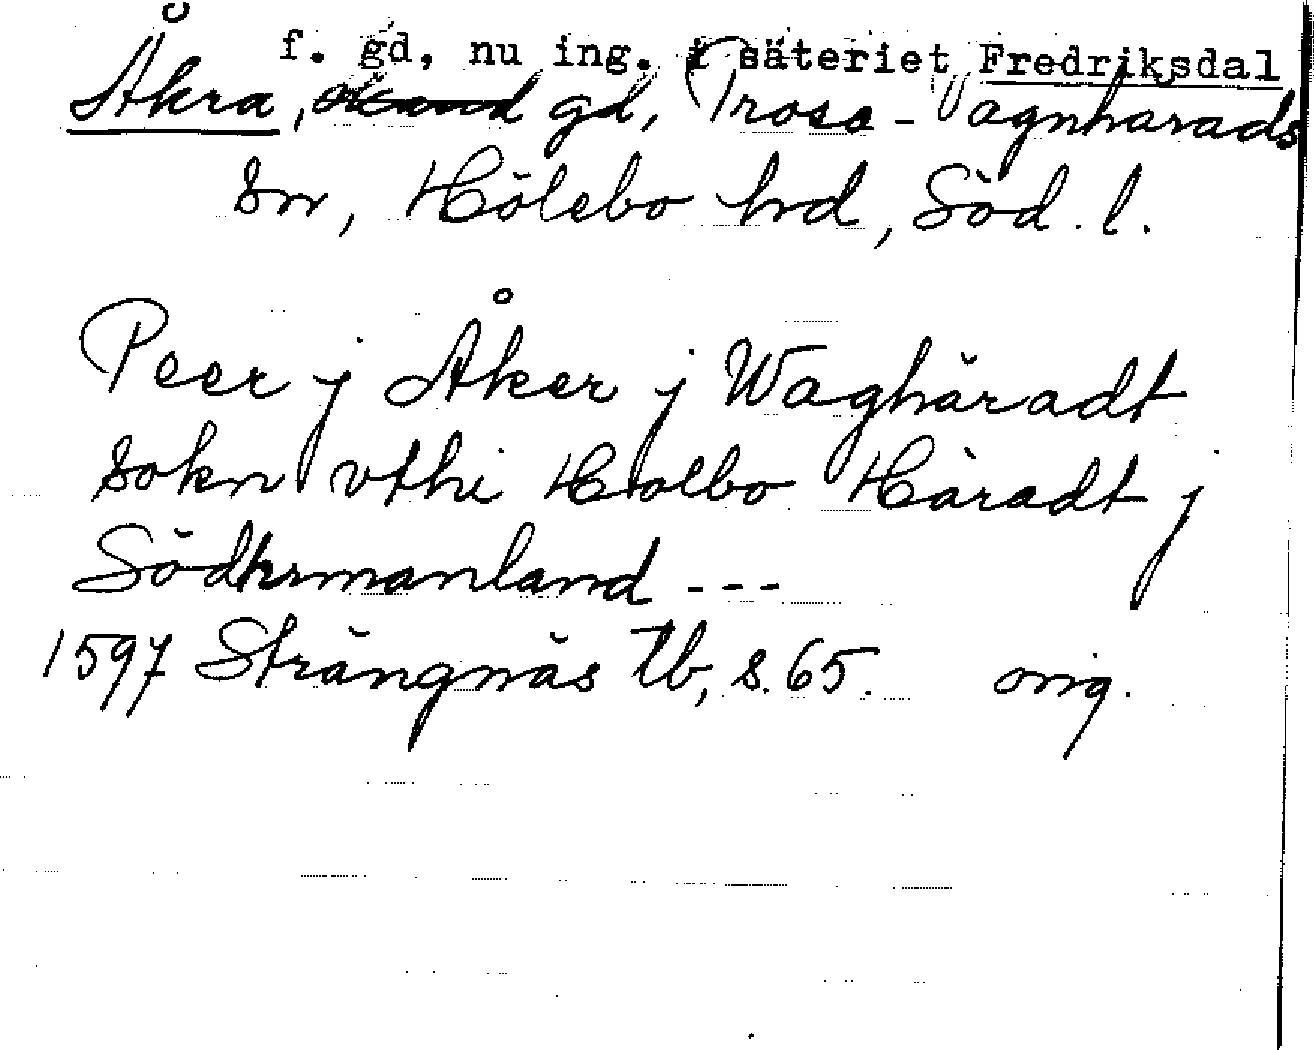 f. gd, nu ing. i säteriet Fredriksdal
Åkra, okänd gd, Trosa-Vagnhärads
sn, Hölebo hrd, Söd. l.
Peer j Åker j Waghäradt
sokn vthi Holbo Häradt j
Södhermanland ---
1597 Strängnäs tb, s. 65. orig.